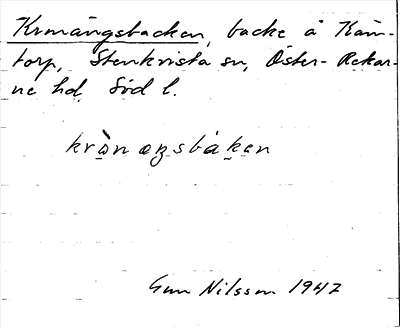 Krmängsbacken, backe å Käm-
torp, Stenkvista sn, Öster-Rekar-
ne hd, Söd l.
krànæŋsbáken
Gun Nilsson 1942